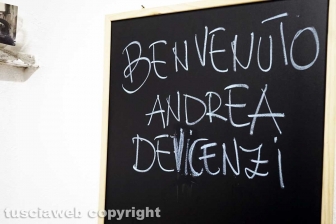 BENVENUTO
ANDREA
DEVICENZI
tusciaweb copyright